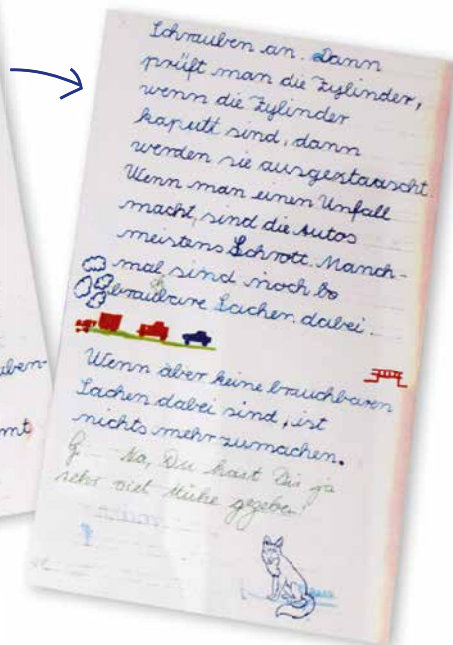 Schrauben an. Dann
prüft man die Zylinder,
wenn die Zylinder
kaputt sind, dann
werden sie ausgetauscht.
Wenn man einen Unfall
macht, sind die Autos
meistens Schrott. Manch-
mal sind noch bo
braubare Sachen dabei.
Wenn aber keine brauchbaren
Sachen dabei sind, ist
nichts mehr zumachen.
Na, Du hast Dir ja
sehr viel Mühe gegeben!
uben-
mt